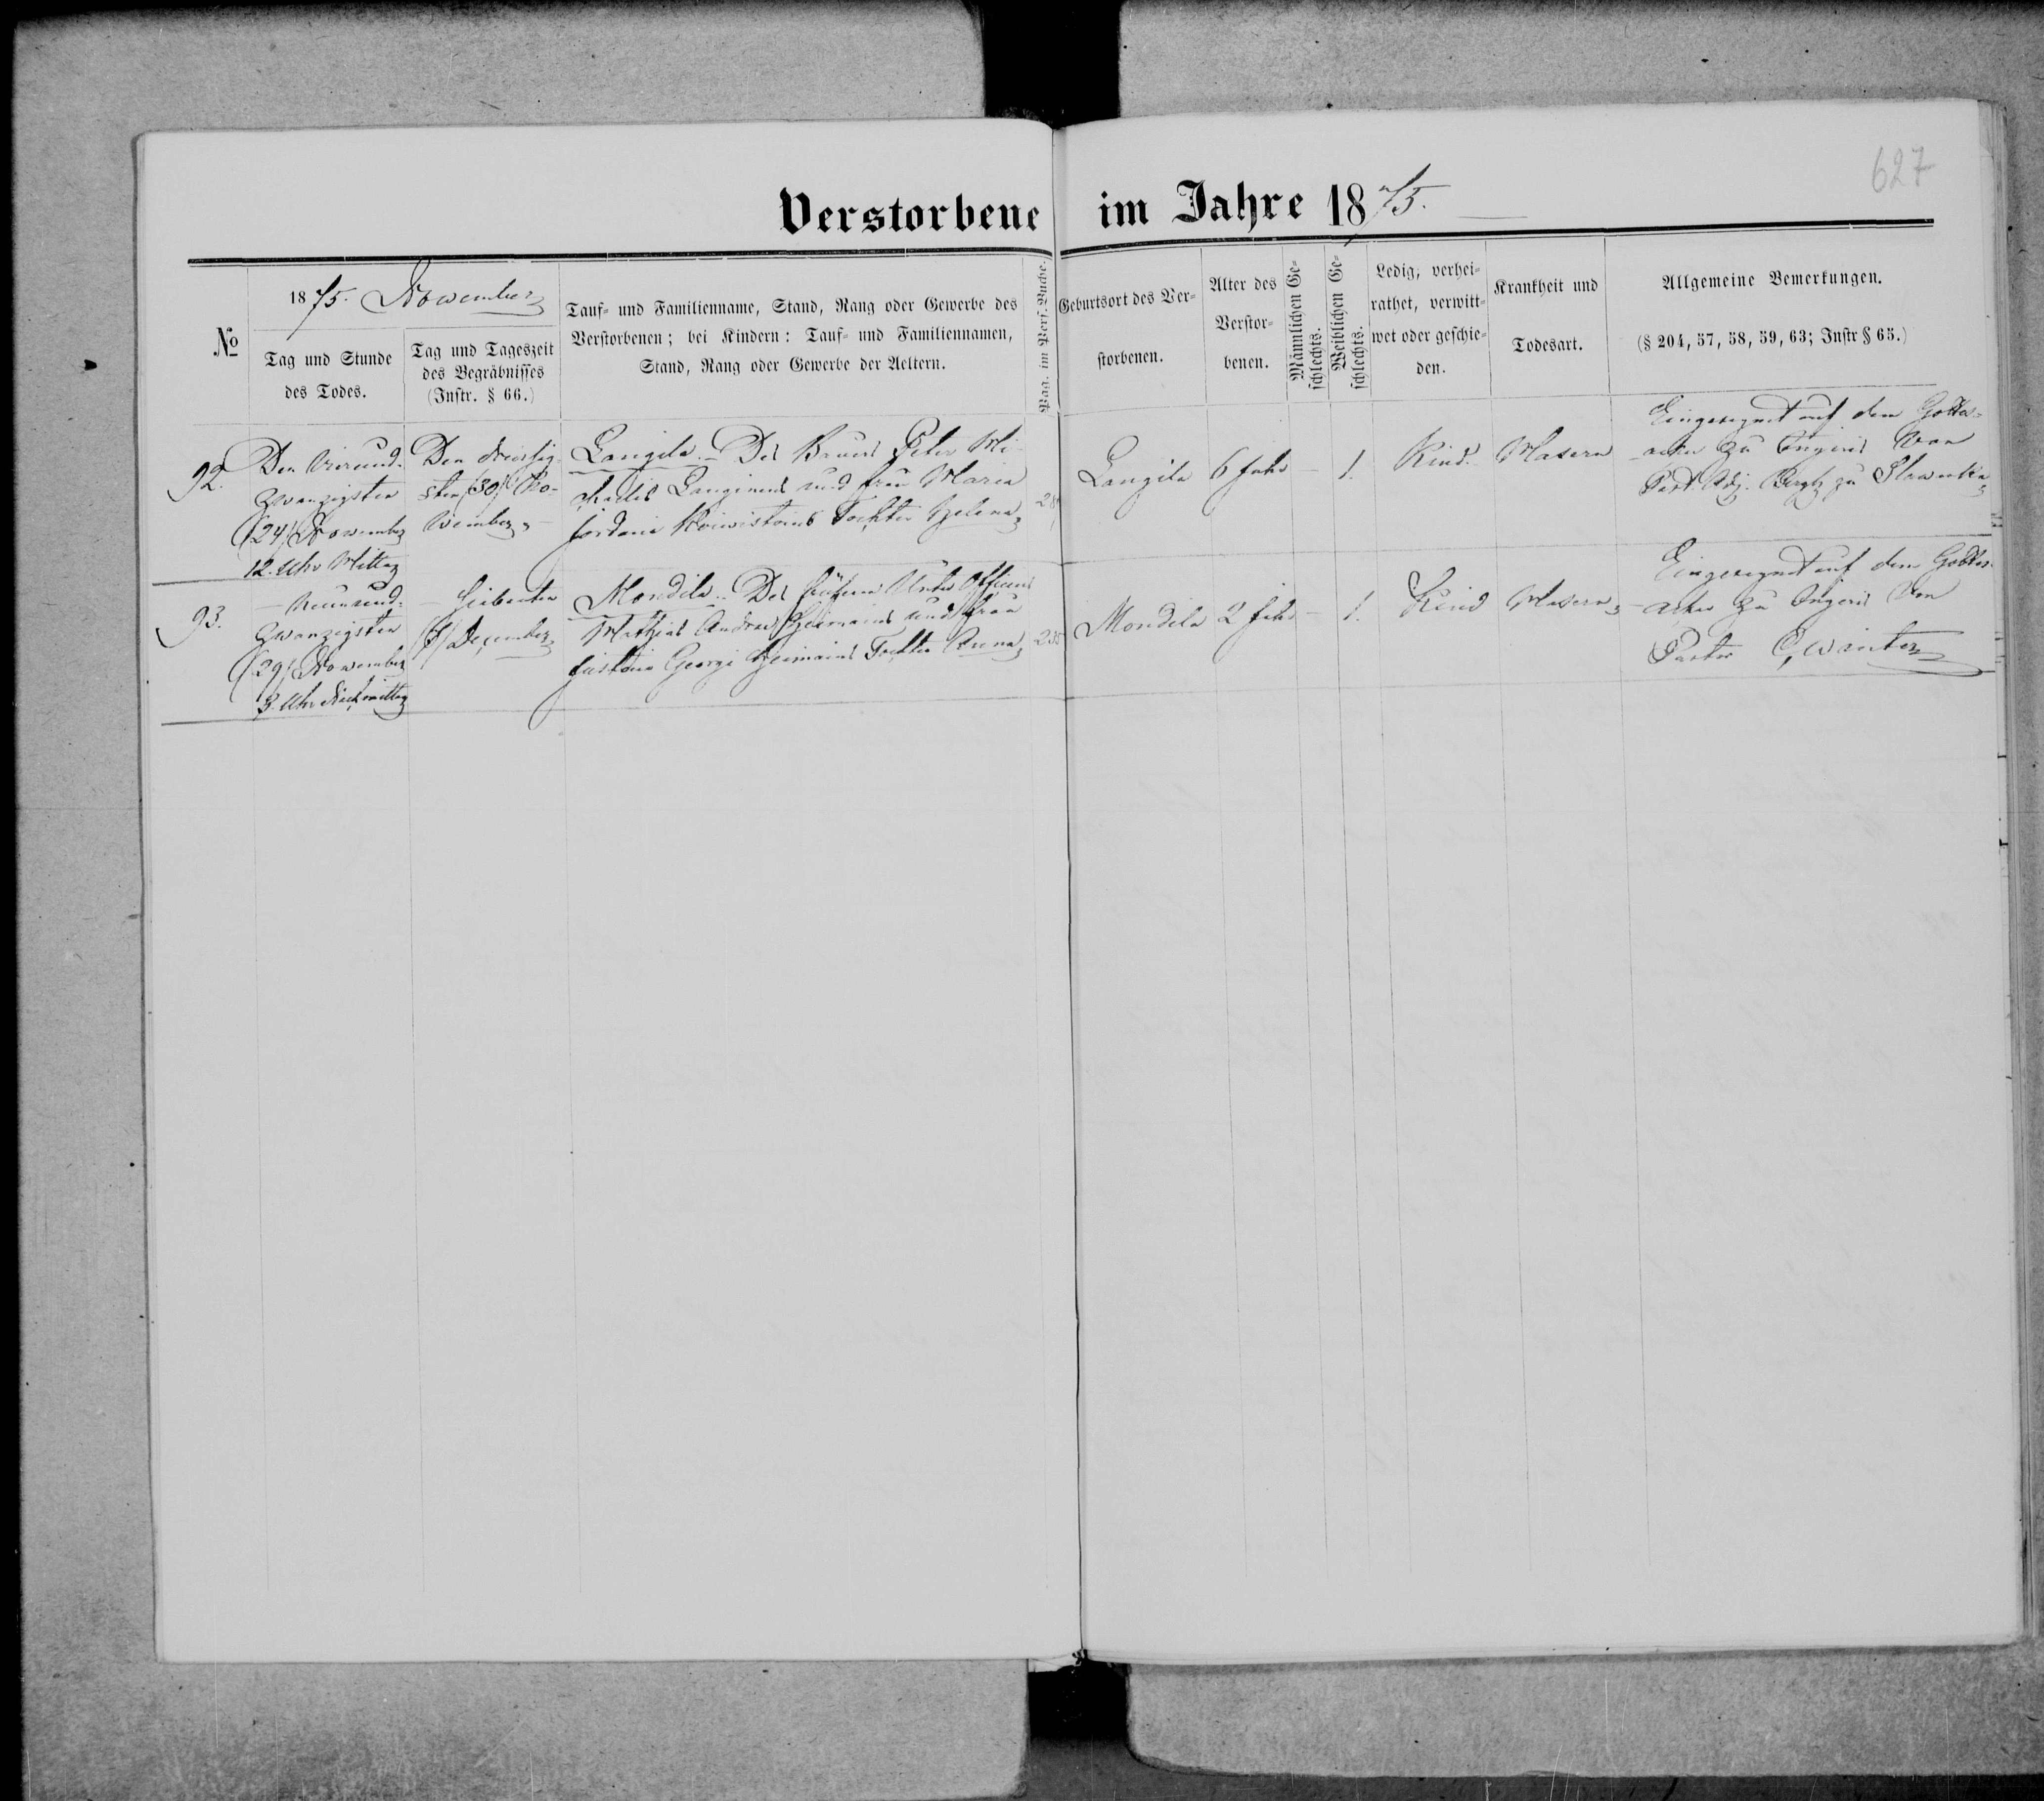 627
Verstorbene im Jahre 1875.
№
1875. November
Tag und Stunde
des Todes.
Tag und Tageszeit
des Begräbnisses
(Instr. § 66.)
Tauf- und Familienname, Stand, Rang oder Gewerbe des
Verstorbenen; bei Kindern: Tauf- und Familiennamen,
Stand, Rang oder Gewerbe der Aeltern.
Pag. im Pers. Buche.
Geburtsort des Ver-
storbenen.
Alter des
Verstor-
benen.
Männlichen Ge-
schlechts.
Weiblichen Ge-
schlechts.
Ledig, verhei-
rathet, verwitt-
wet oder geschie-
den.
Krankheit und
Todesart.
Allgemeine Bemerkungen.
(§ 204, 57, 58, 59, 63; Instr § 65.)
92.
Den vierund-
zwanzigsten
(24) November
12. Uhr Mittag
Den dreissig-
sten (30) No-
vember
Langila. – Des Bauers Peter Mi-
und Frau Maria
Tochter Helena
Langila
6 Jahr
–
1.
Kind.
Masern
Eingesegnet auf dem Gottes-
acker zu von
Past. Adj. zu
93.
– Neunund-
zwanzigsten
(29) November
3. Uhr Nachmittag
– Siebenten
(7) December
Mondila. Des
Mathias Andreas und Frau
Georgi Tochter Anna
Mondila
2 Jahr
–
1.
Kind
Masern
Eingesegnet auf dem Gottes-
acker zu von
Pastor